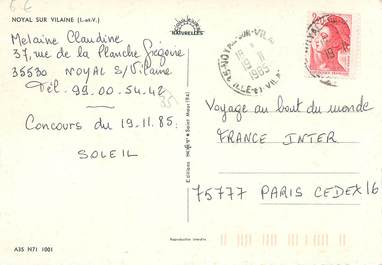 6 €
NOYAL SUR VILAINE (I.-et-V.)
NATURELLES
Melaine Claudine
37, rue de la Planche Grégoire
35530 NOYAL S/Vilaine
Tél. 99.00-54.42
35
Concours du 19.11.85:
SOLEIL
Voyage au bout du monde
FRANCE INTER
75777 PARIS CEDEX 16
35-NOYAL-SUR-VILAINE
19-11
1985
ILLE-et-VILAINE
Reproduction interdite
A35 N71 1001